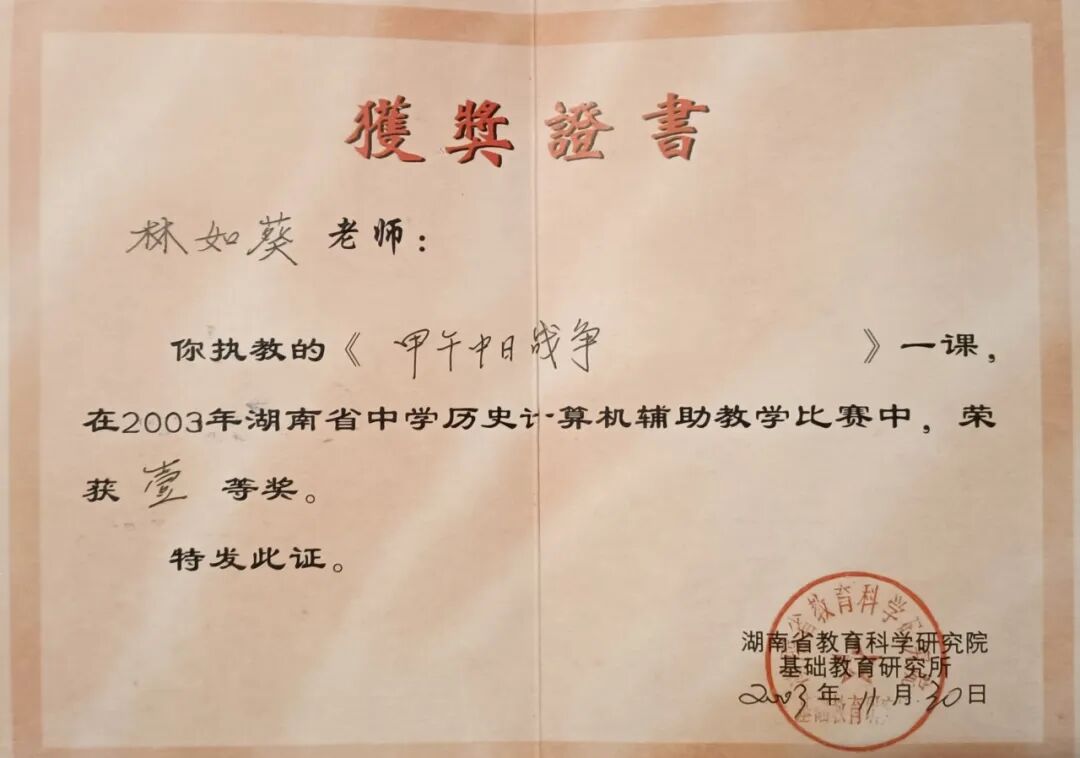 獲獎證書
林如葵 老师：
你执教的《 甲午中日战争 》一课，
在2003年湖南省中学历史计算机辅助教学比赛中，荣
获 壹 等奖。
特发此证。
湖南省教育科学研究院
基础教育研究所
2003年11月30日